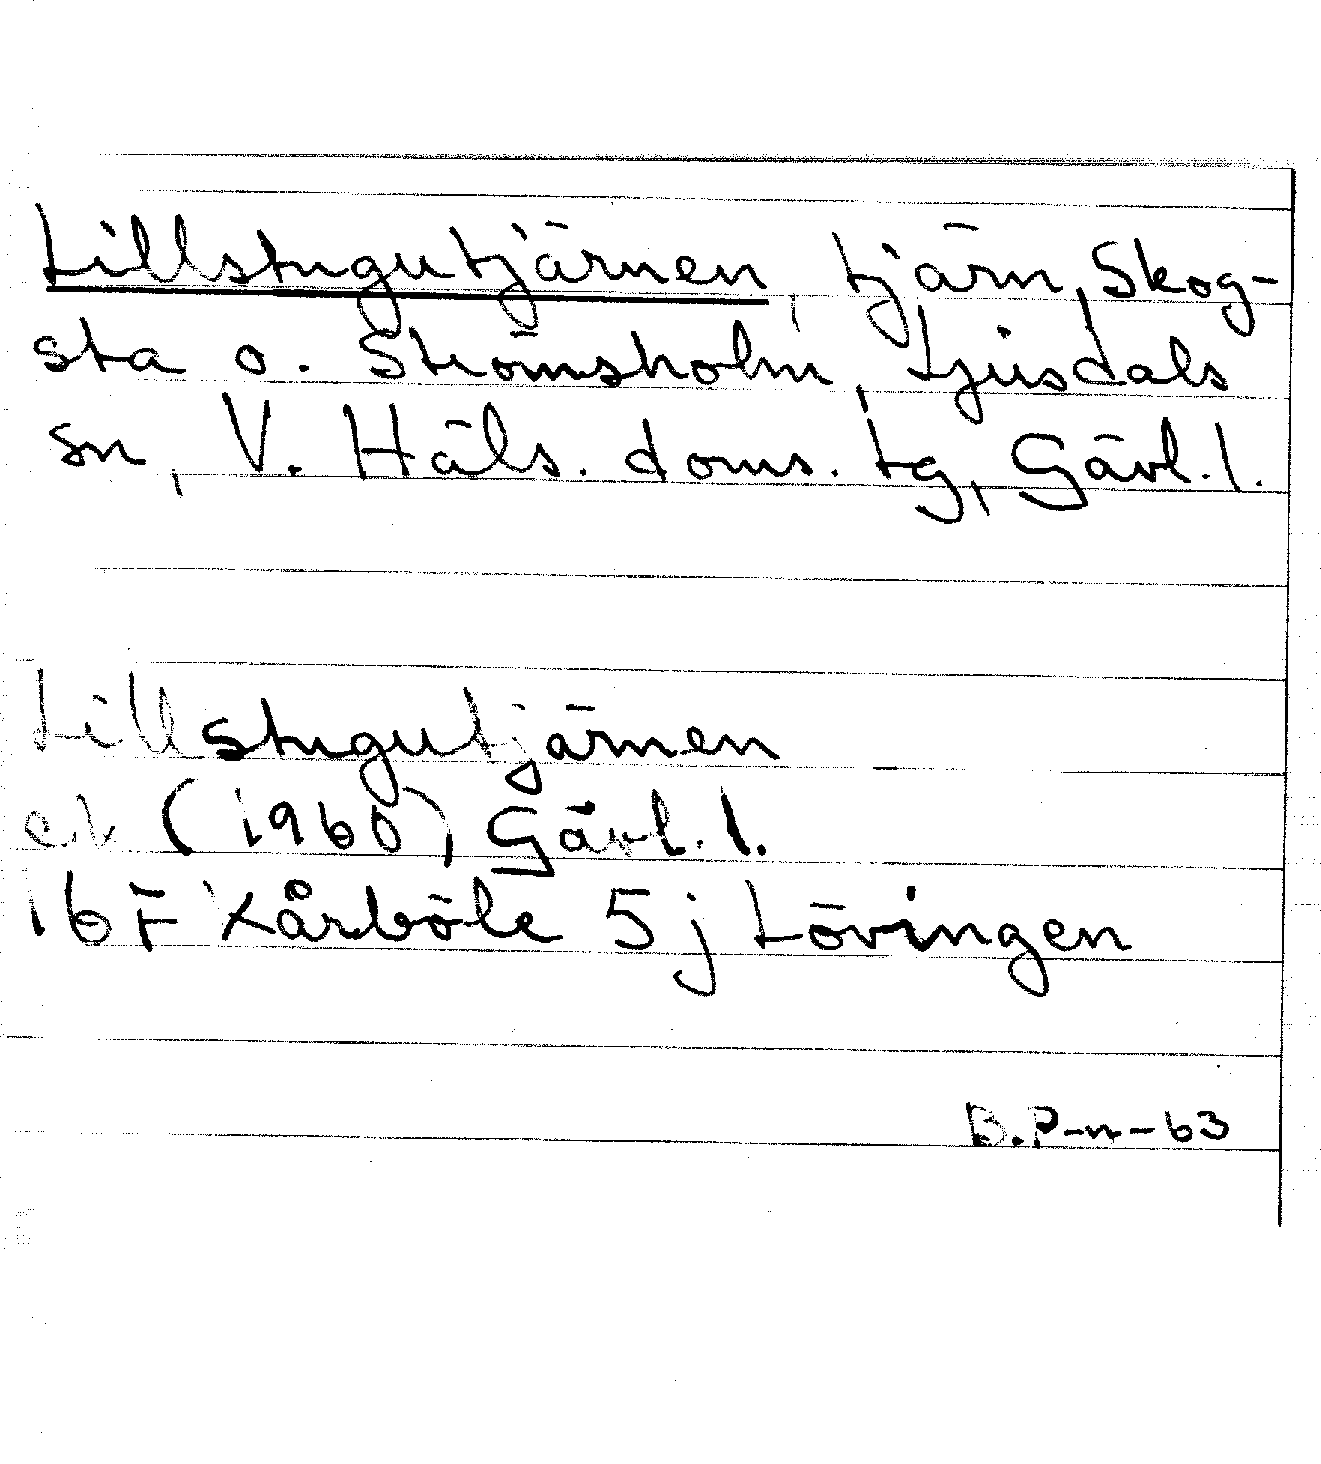 Lillstugutjärnen, tjärn, Skog-
sta o. Strömsholm, Ljusdals
sn, V. Häls. doms. tg, Gävl. l.
Lillstugutjärnen
e.k (1960) Gävl. l.
16F Kårböle 5j Lövingen
B.P-n-63